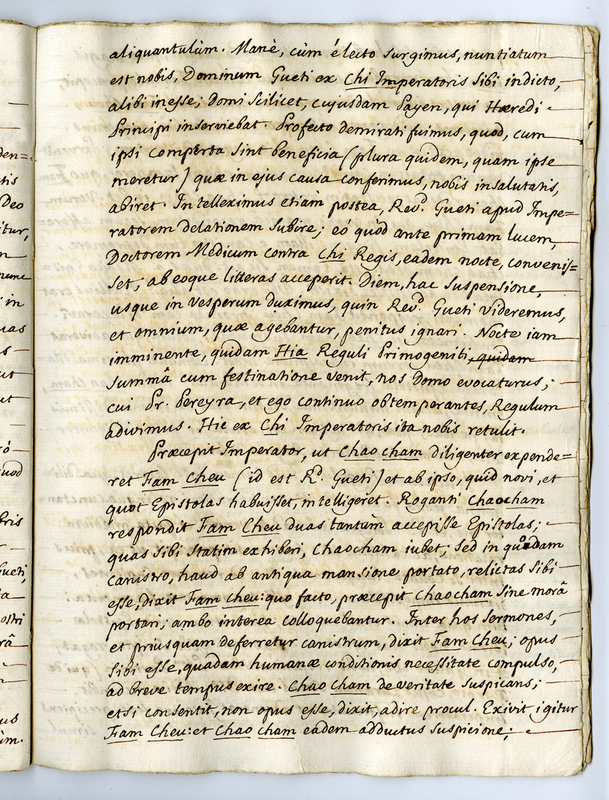 aliquantulùm. Manè, cùm é lecto surgimus, nuntiatum
est nobis, Dominum Gueti ex Chi Imperatoris sibi indicto,
alibi inesse; Domi scilicet, cujusdam Payen, qui Hæredi
Principi inserviebat. Profecto demirati fuimus, quod, cum
ipsi comperta sint beneficia (plura quidem, quam ipse
meretur) quæ in ejus causa conferimus, nobis insalutatis,
abiret. Intelleximus etiam postea, Rev.ᵈ Gueti apud Impe=
ratorem delationem subire; eó quòd ante primam lucem,
Doctorem Medicum contra Chi Regis, eadem nocte, convenis=
set, ab eoque litteras acceperit. Diem, hac suspensione,
usque in vesperum duximus, quin Rev.ᵈ Gueti videremus,
et omnium, quæ agebantur, penitus ignari. Nocte iam
imminente, quidam Hia Reguli Primogeniti, quidam
summâ cum festinatione venit, nos domo evocaturus;
cui Pr. Pereyra, et ego continuo obtemperantes, Regulum
adivimus. Hic ex Chi Imperatoris ita nobis retulit.
Præcepit Imperator, ut Chao cham diligenter expende=
ret Fam Cheu (id est R. Gueti) et ab ipso, quid novi, et
quot Epistolas habuisset, intelligeret. Roganti Chaocham
respondit Fam Cheu duas tantùm accepisse Epistolas;
quas sibi statim exhiberi, Chaocham iubet; sed in quodam
canistro, haud ab antiqua mansione portato, relictas sibi
esse, dixit Fam Cheu: quo facto, præcepit Chaocham sine morâ
portari; ambo interea colloquebantur. Inter hos sermones,
et priusquam deferretur canistrum, dixit Fam Cheu; opus
sibi esse, quadam humanæ conditionis necessitate compulso,
ad breve tempus exire. Chao cham de veritate suspicans;
etsi consentit, non opus esse, dixit, adire procul. Exivit igitur
Fam Cheu: et Chao cham eadem adductus suspicione;